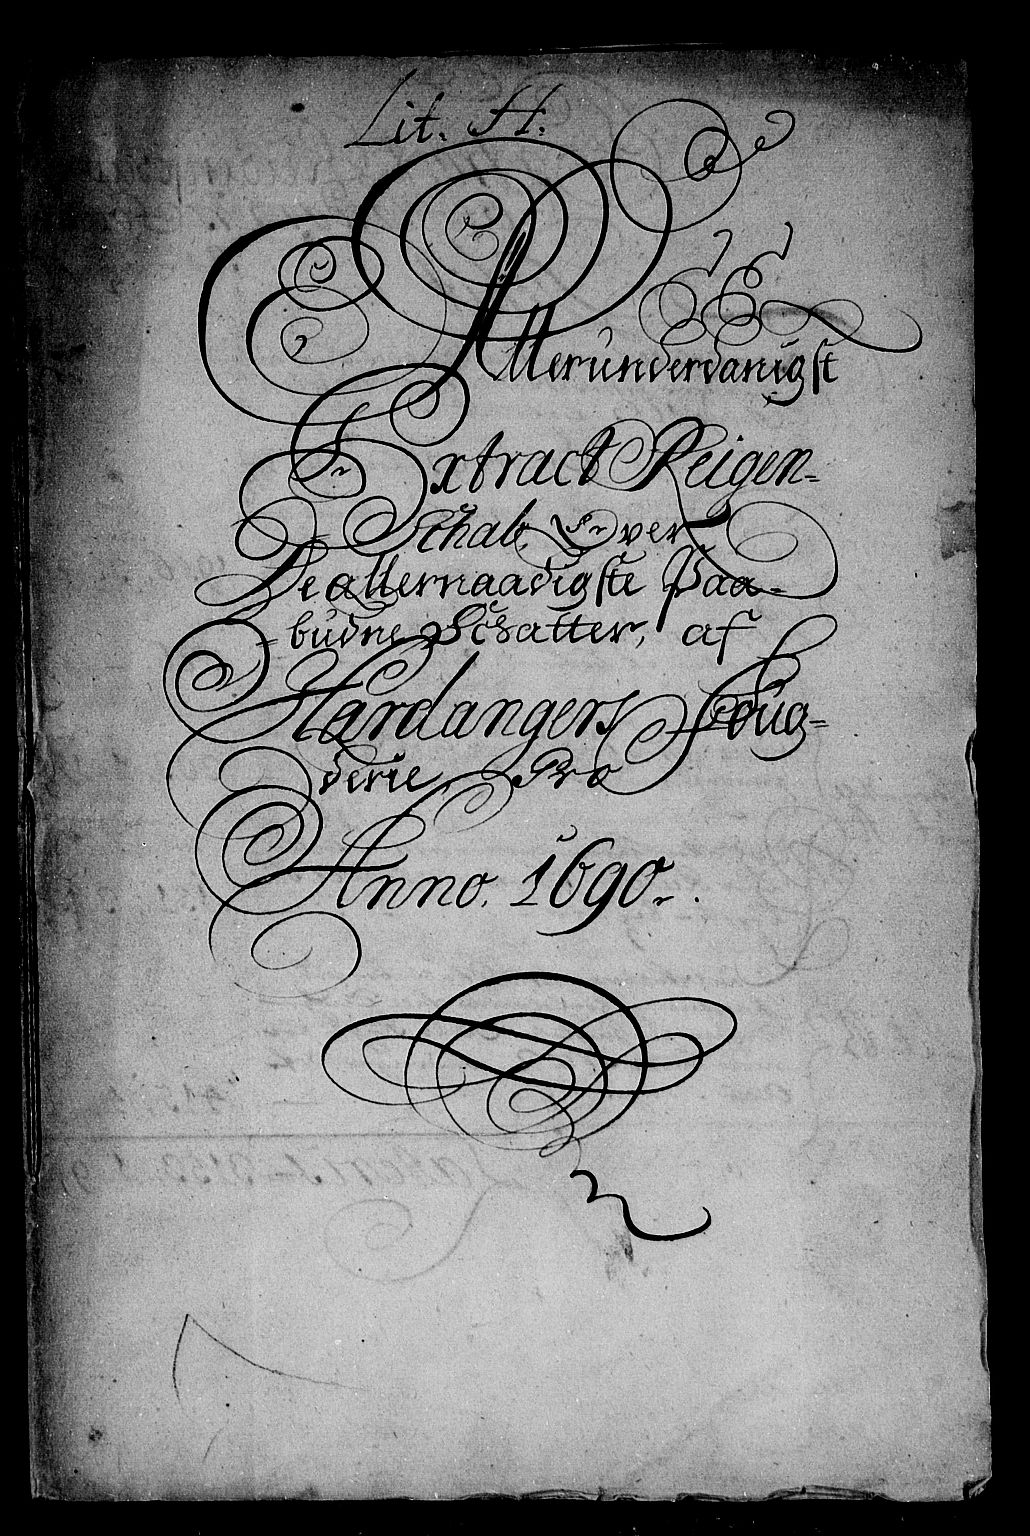 Lit. H.
Allerunderdanigst
Extract Reigen-
schab, Over
De allernaadigste Paa-
-budne Schatter, af
Hardangers Foug-
derie Pro
Anno. 1690.